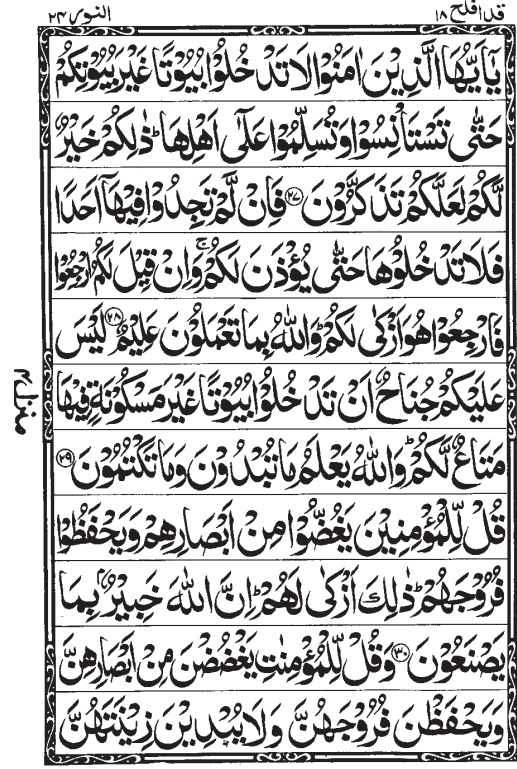 قد افلح ١٨
النور ٢٤
يٰۤاَيُّهَا الَّذِيْنَ اٰمَنُوْا لَا تَدْخُلُوْا بُيُوْتًا غَيْرَ بُيُوْتِكُمْ
حَتّٰى تَسْتَاْنِسُوْا وَتُسَلِّمُوْا عَلٰٓى اَهْلِهَا ؕ ذٰلِكُمْ خَيْرٌ
لَّكُمْ لَعَلَّكُمْ تَذَكَّرُوْنَ ﴿۲۷﴾ فَاِنْ لَّمْ تَجِدُوْا فِيْهَاۤ اَحَدًا
فَلَا تَدْخُلُوْهَا حَتّٰى يُؤْذَنَ لَكُمْ ۚ وَاِنْ قِيْلَ لَكُمُ ارْجِعُوْا
فَارْجِعُوْا هُوَ اَزْكٰى لَكُمْ ؕ وَاللّٰهُ بِمَا تَعْمَلُوْنَ عَلِيْمٌ ﴿۲۸﴾ لَيْسَ
عَلَيْكُمْ جُنَاحٌ اَنْ تَدْخُلُوْا بُيُوْتًا غَيْرَ مَسْكُوْنَةٍ فِيْهَا
مَتَاعٌ لَّكُمْ ؕ وَاللّٰهُ يَعْلَمُ مَا تُبْدُوْنَ وَمَا تَكْتُمُوْنَ ﴿۲۹﴾
قُلْ لِّلْمُؤْمِنِيْنَ يَغُضُّوْا مِنْ اَبْصَارِهِمْ وَيَحْفَظُوْا
فُرُوْجَهُمْ ؕ ذٰلِكَ اَزْكٰى لَهُمْ ؕ اِنَّ اللّٰهَ خَبِيْرٌۢ بِمَا
يَصْنَعُوْنَ ﴿۳۰﴾ وَقُلْ لِّلْمُؤْمِنٰتِ يَغْضُضْنَ مِنْ اَبْصَارِهِنَّ
وَيَحْفَظْنَ فُرُوْجَهُنَّ وَلَا يُبْدِيْنَ زِيْنَتَهُنَّ
منزل ۴